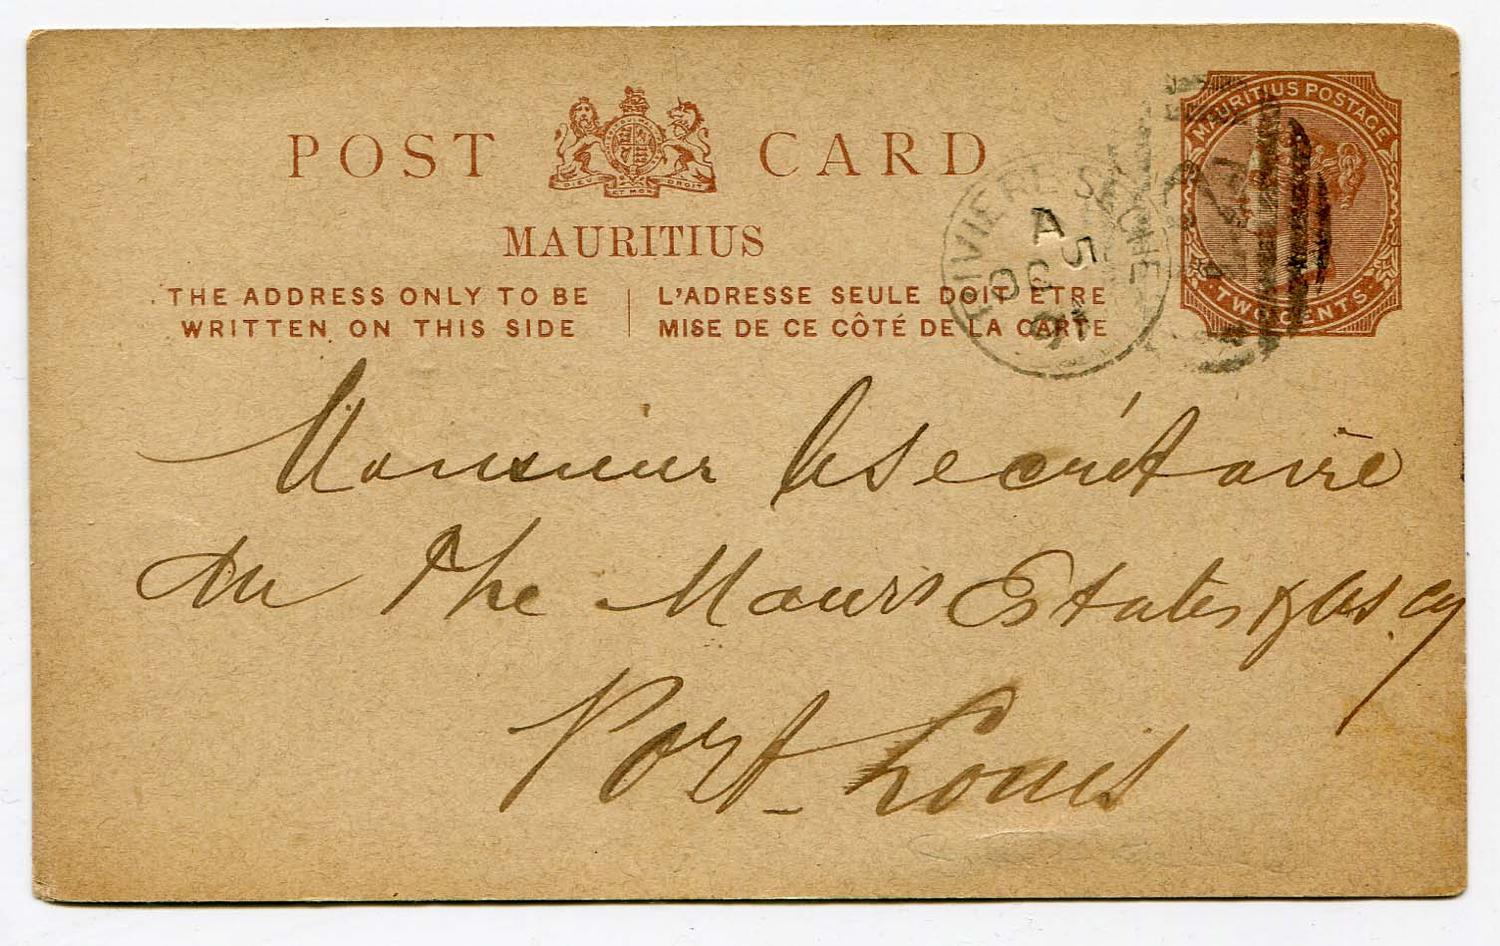 POST CARD
DIEU ET MON DROIT
MAURITIUS
THE ADDRESS ONLY TO BE
WRITTEN ON THIS SIDE
L'ADRESSE SEULE DOIT ETRE
MISE DE CE CÔTÉ DE LA CARTE
MAURITIUS POSTAGE
TWO CENTS
RIVIERE SECHE
A
5
OC
91
Monsieur le secrétaire
du The Maurs Estates & As. Cy
Port-Louis